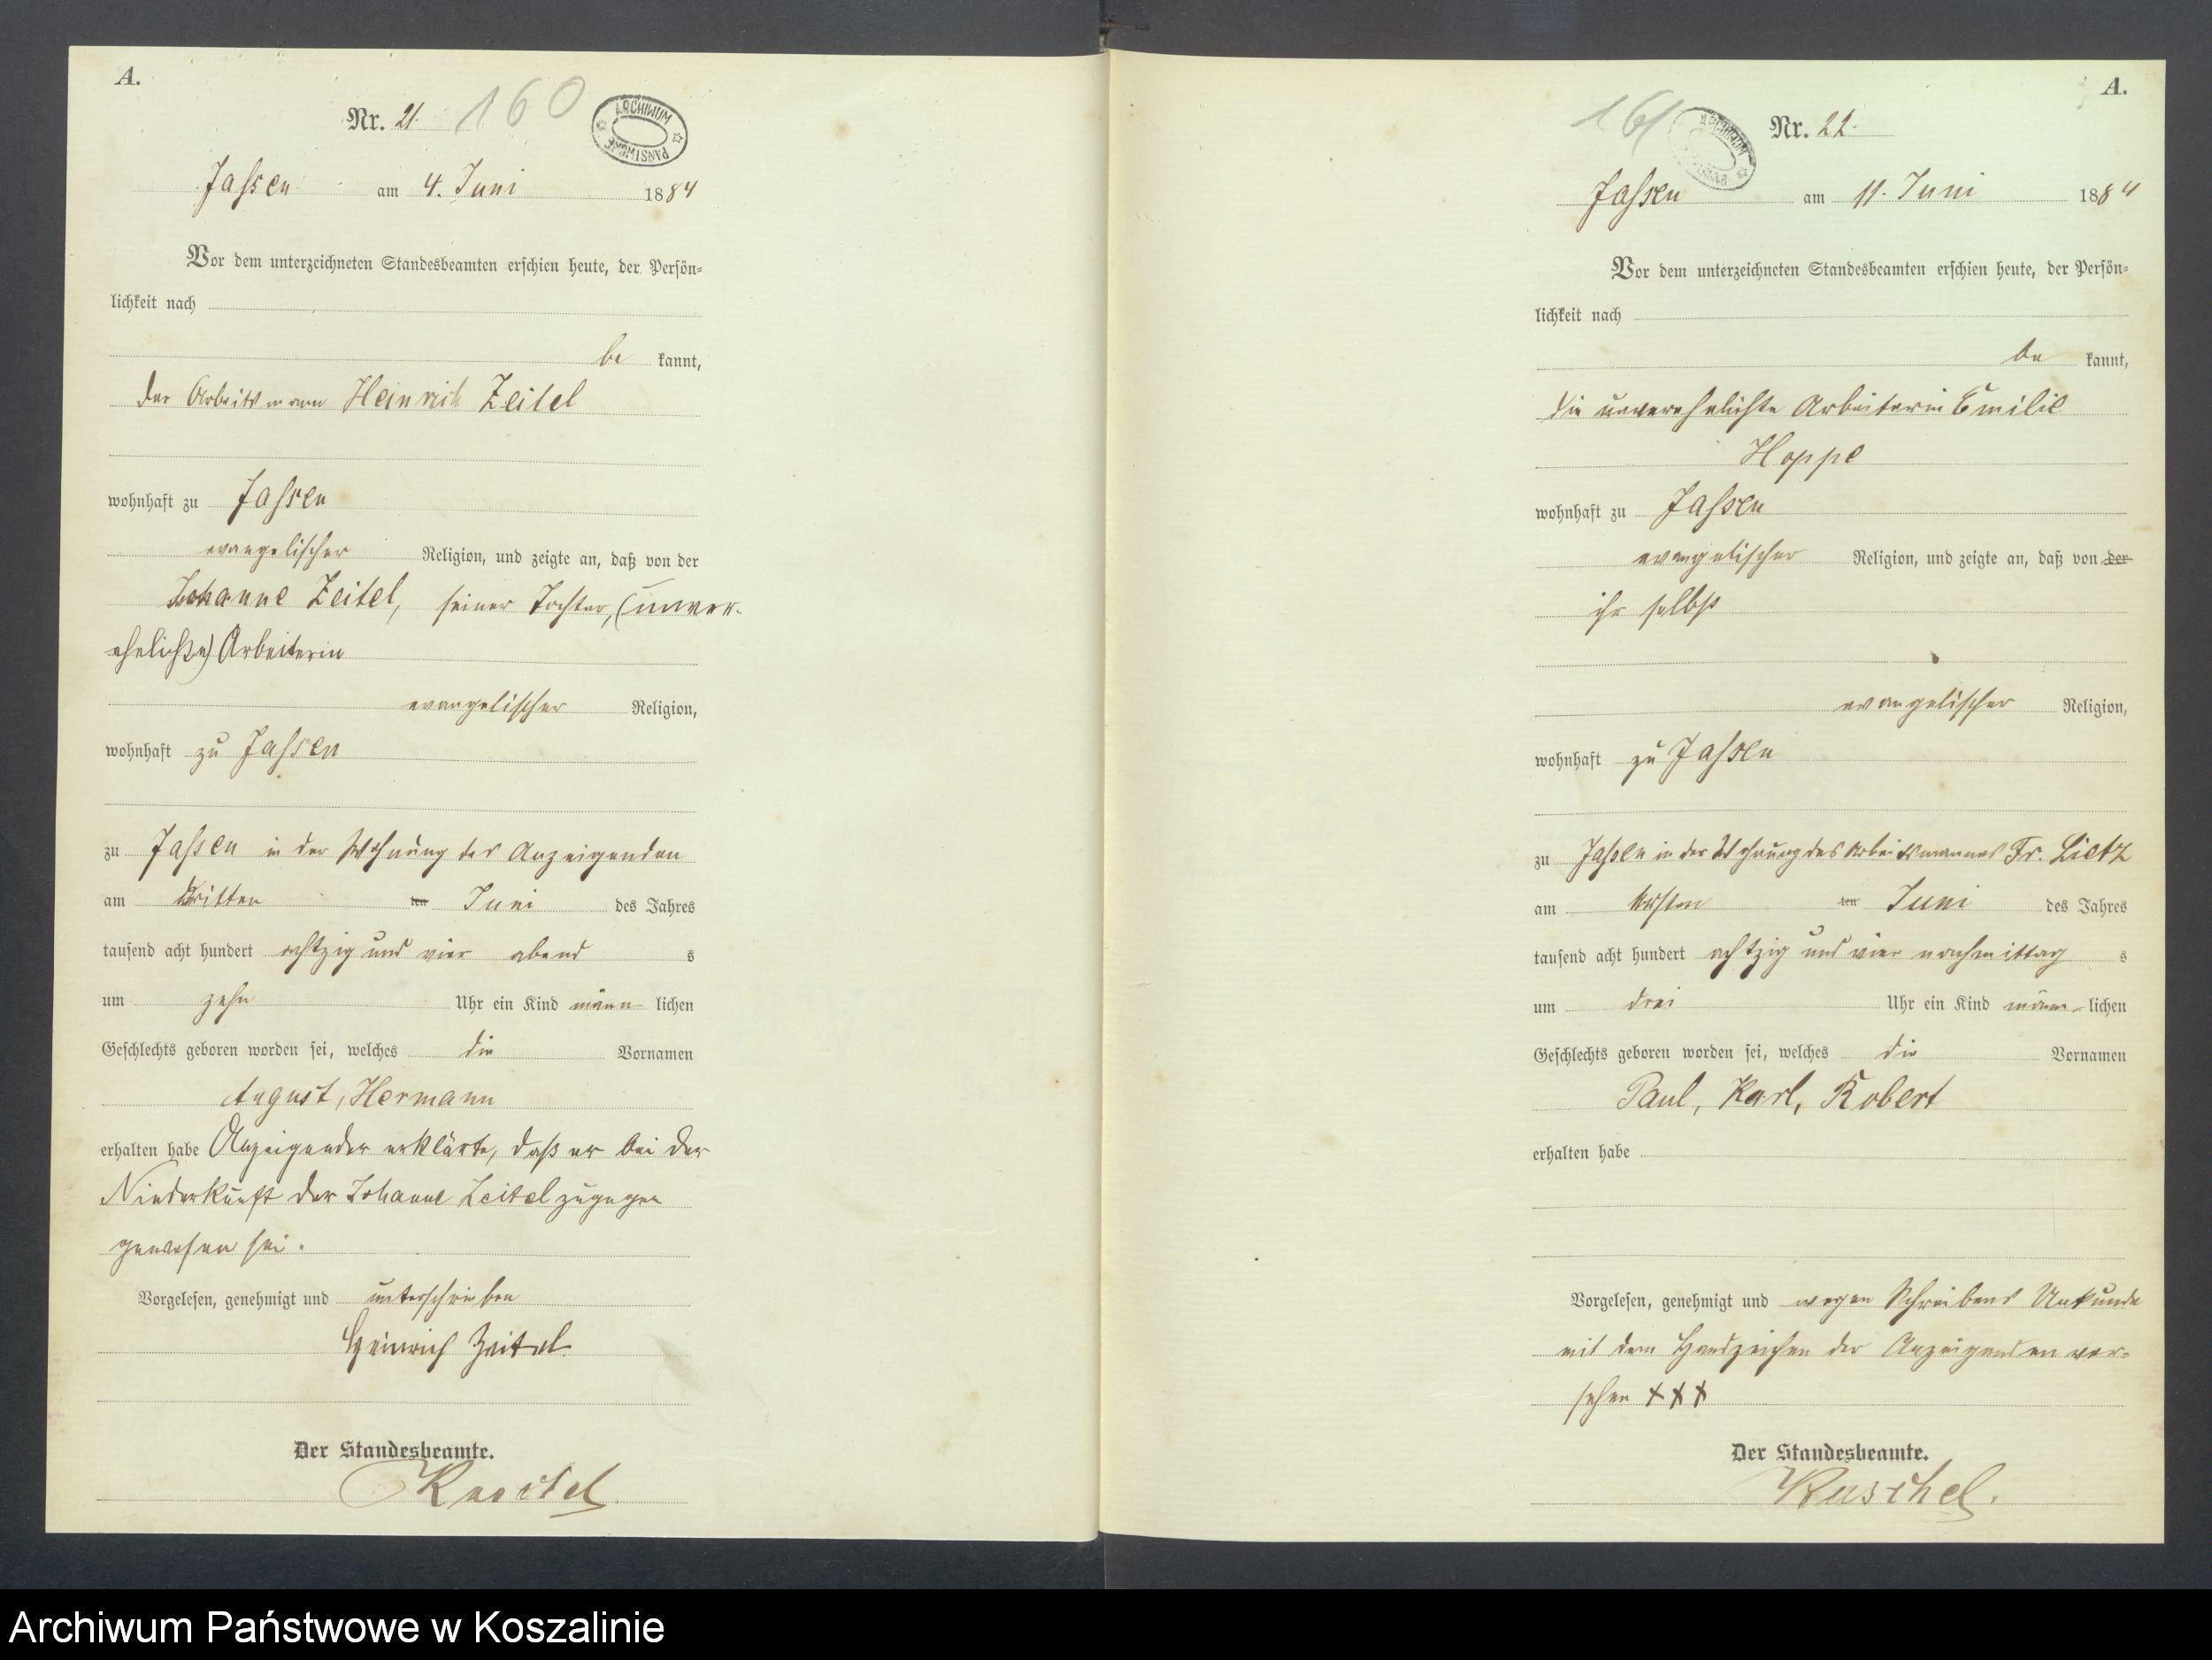 A.
Nr. 21. 160
ARCHIWUM PAŃSTWOWE
Jassen am 4. Juni 1884
Vor dem unterzeichneten Standesbeamten erschien heute, der Persön-
lichkeit nach
be kannt,
der Arbeitsmann Heinrich Zeitel
wohnhaft zu Jassen
evangelischer Religion, und zeigte an, daß von der
Johanne Zeitel, seiner Tochter, (unver-
ehelichte) Arbeiterin
evangelischer Religion,
wohnhaft zu Jassen
zu Jassen in der Wohnung des Anzeigenden
am dritten ten Juni des Jahres
tausend acht hundert achtzig und vier abend s
um zehn Uhr ein Kind männ lichen
Geschlechts geboren worden sei, welches die Vornamen
August, Hermann
erhalten habe Anzeigender erklärte, daß er bei der
Niederkunft der Johanne Zeitel zugegen
gewesen sei.
Vorgelesen, genehmigt und unterschrieben
Heinrich Zeitel
Der Standesbeamte.
Kuschel
A.
161 Nr. 22.
ARCHIWUM
Jassen am 11. Juni 1884
Vor dem unterzeichneten Standesbeamten erschien heute, der Persön-
lichkeit nach
be kannt,
die unverehelichte Arbeiterin Emilie
Hoppe
wohnhaft zu Jassen
evangelischer Religion, und zeigte an, daß von der
ihr selbst
evangelischer Religion,
wohnhaft zu Jassen
zu Jassen in der Wohnung des Arbeitsmannes Fr. Lietz
am ersten ten Juni des Jahres
tausend acht hundert achtzig und vier nachmittag s
um drei Uhr ein Kind männ- lichen
Geschlechts geboren worden sei, welches die Vornamen
Paul, Karl, Robert
erhalten habe
Vorgelesen, genehmigt und wegen Schreibens Unkunde
mit dem Handzeichen der Anzeigenden ver-
sehen XXX
Der Standesbeamte.
Kuschel.
Archiwum Państwowe w Koszalinie